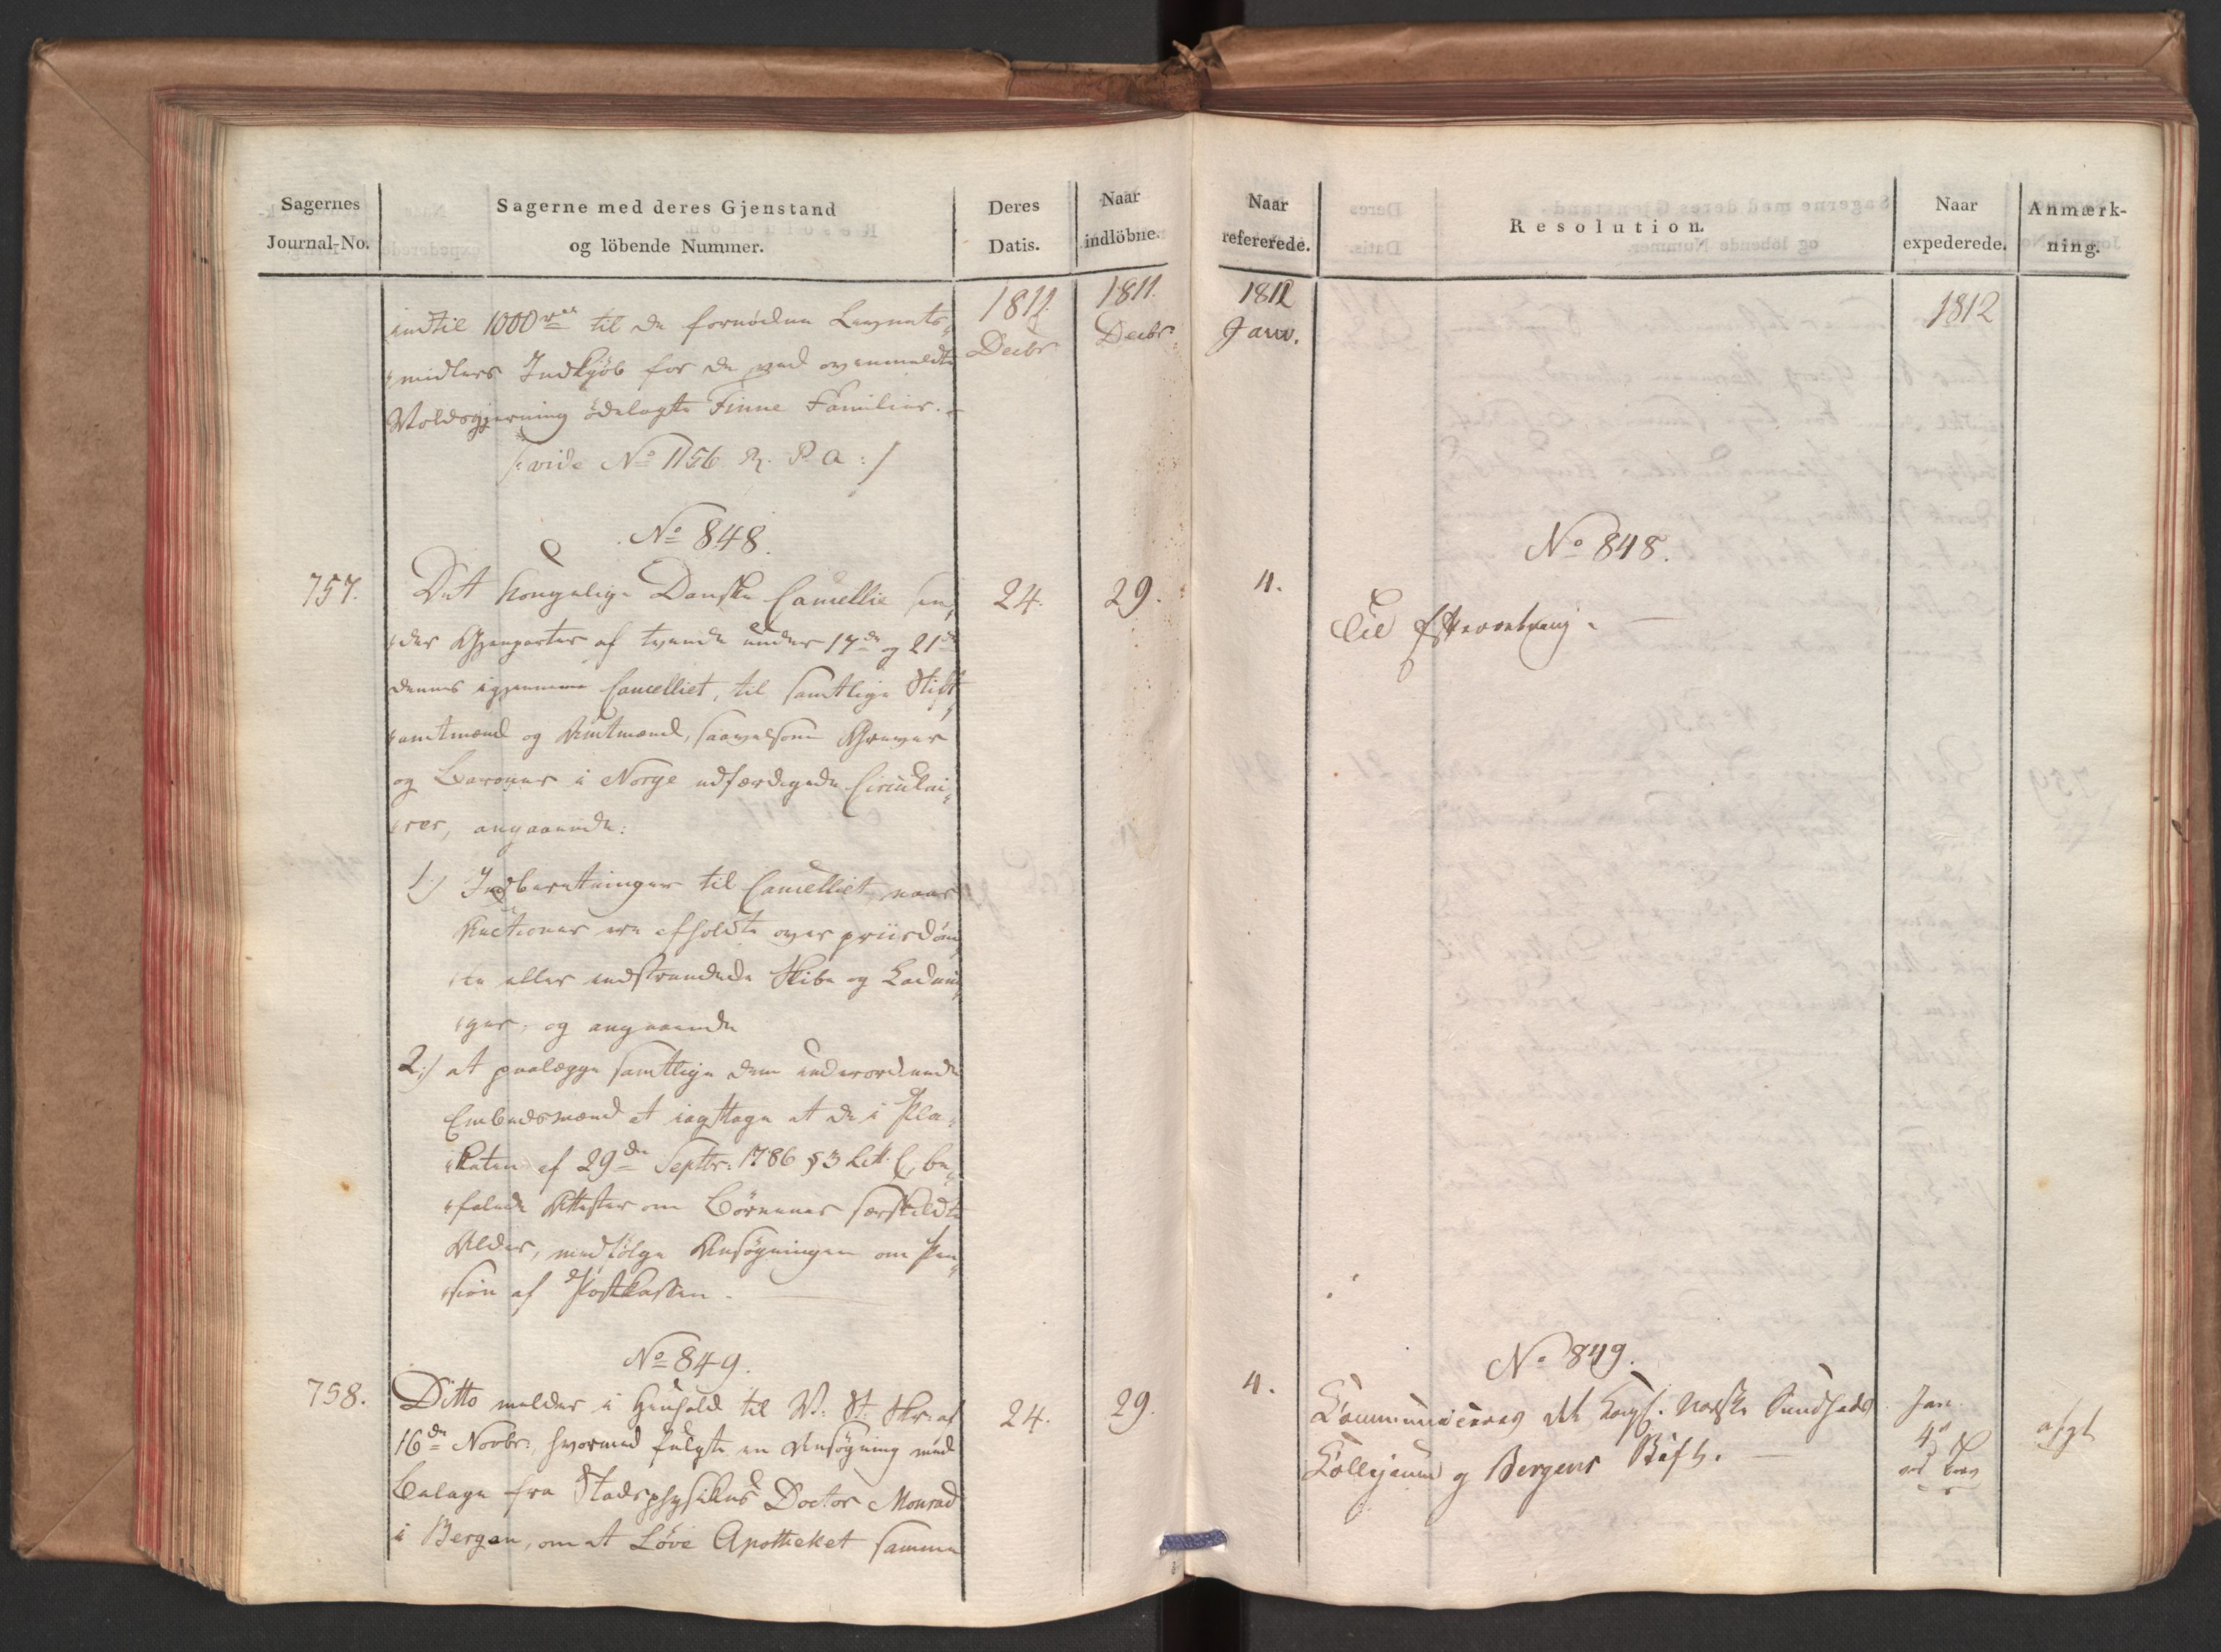 Sagernes
Journal-No.
Sagerne med deres Gjenstand
og löbende Nummer.
Deres
Datis.
Naar
indlöbne.
1811.
Decbr
1811.
Decbr.
indtil 1000 rd til de fornødne Levnets-
midlers Indkjöb for de ved ovenmeldte
Voldsgjerning ödelagte Finne Familier.
/: vide No 1156 R. P. A :/
No 848.
757.
Det kongelige Danske Cancellie sen-
24.
29.
der Gjenparter af tvende under 17de og 21de
dennes igjennem Cancelliet, til samtlige Stift-
amtmænd og Amtmænd, saavelsom Grever
og Baroner i Norge udfærdigede Circulai-
rer, angaaende:
1.) Indberetninger til Cancelliet, naar
Auctioner ere afholdte over priisdöm-
te eller indstrandede Skibe og Ladnin-
ger, og angaaende
2.) at paalægge samtlige dem underordnede
Embedsmænd at iagttage at de i Pla-
katen af 29de Septbr. 1786 § 3 Litt. C, be-
falede Attester om Börnenes særskildte
Alder, medfölge Ansögningen om Pen-
sion af Postkassen.
No 849.
758.
Ditto melder i Henhold til V. St. Skr. af
24.
29.
16de Novbr., hvormed fulgte en Ansögning med
Bilage fra Stadsphysikus Doctor Monrad
i Bergen, om at Löve Apotheket samme
Naar
refererede.
Resolution.
Naar
expederede.
Anmærk-
ning.
1812
Janv.
1812
No 848.
4.
Til Efterretning.
No 849.
4.
Communiceres det kongl. norske Sundheds
Collegium og Bergens Stift.
Jan.
4d
afgt